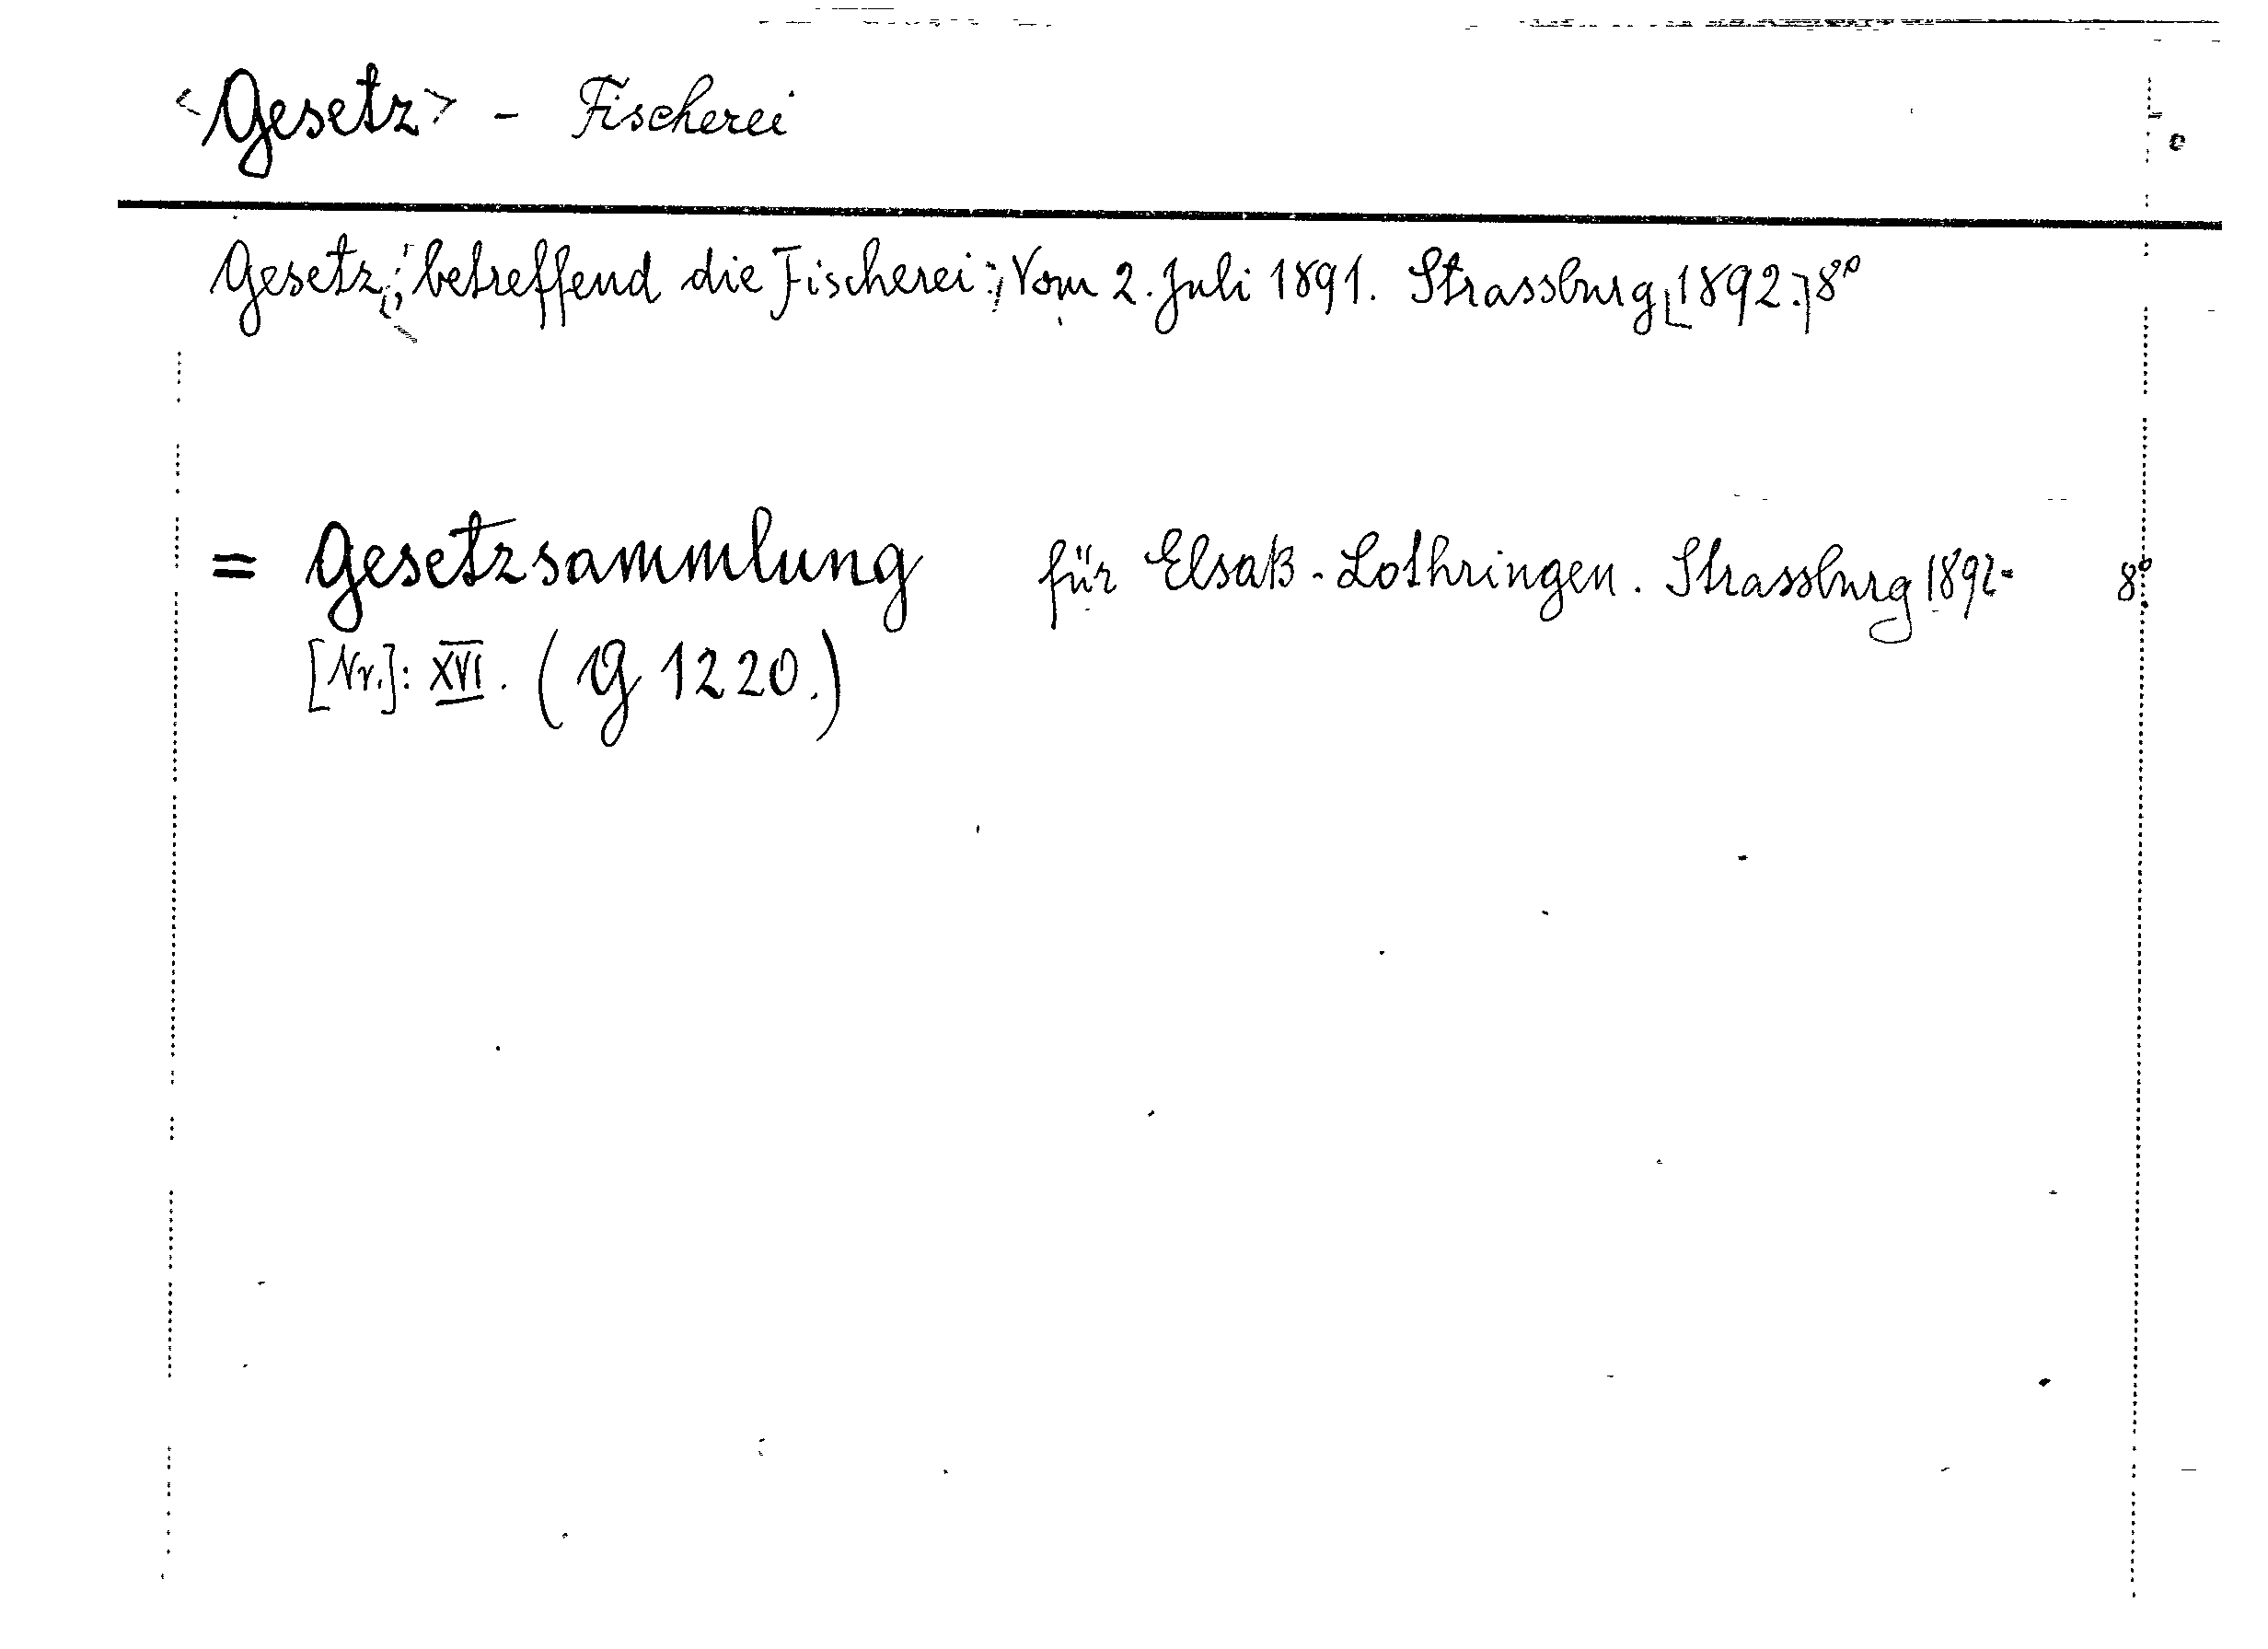 <Gesetz> - Fischerei
Gesetz, betreffend die Fischerei; Vom 2. Juli 1891. Strassburg [1892.] 8°
= Gesetzsammlung für Elsaß-Lothringen. Strassburg 1892- 8°.
[Nr.]: XVI. (G 1220.)